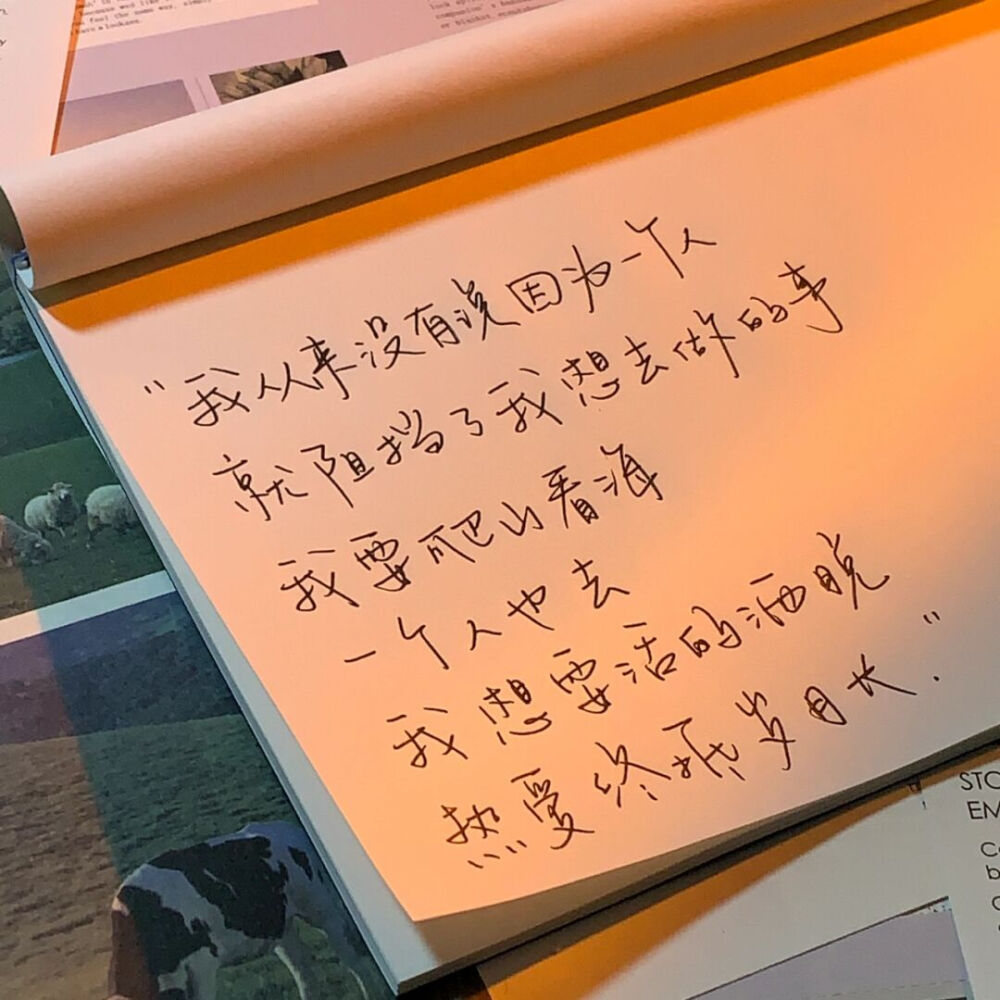 feel the same way, simply
“我从来没有说因为一个人
就阻挡了我想去做的事
我要爬山看海
一个人也去
我想要活的洒脱
热爱终抵岁月长.”
STO
EM